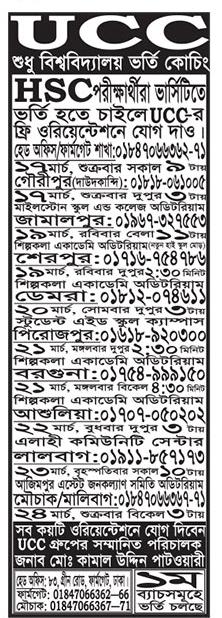 UCC
শুধু বিশ্ববিদ্যালয় ভর্তি কোচিং
HSC পরীক্ষার্থীরা ভার্সিটিতে
ভর্তি হতে চাইলে UCC-র
ফ্রি ওরিয়েন্টেশনে যোগ দাও।
হেড অফিস/ফার্মগেট শাখা:০১৮৪৭০৬৬৩৬২-৭১
১৭ মার্চ, শুক্রবার সকাল ৯ টায়
গৌরীপুর(দাউদকান্দি): ০১৮১৮-০৬১০০৫
১৮ মার্চ, শনিবার দুপুর ২ টায়
মাইলস্টোন স্কুল এন্ড কলেজ অডিটরিয়াম
জামালপুর: ০১৯৬৭-৩২৭৫৫৩
১৯ মার্চ, রবিবার বেলা ১১ টায়
শিল্পকলা একাডেমি অডিটরিয়াম
শেরপুর: ০১৭১৬-৭৫৪৭৮৬
১৯ মার্চ, রবিবার দুপুর ২:৩০ মিনিট
শিল্পকলা একাডেমি অডিটরিয়াম
ডেমরা: ০১৮১২-০৭৪৬১১
২০ মার্চ, সোমবার দুপুর ২ টায়
স্টুডেন্ট এইড স্কুল ক্যাম্পাস
পিরোজপুর: ০১৬১৮-৯২০৩০০
২১ মার্চ, মঙ্গলবার দুপুর ২:৩০ মিনিট
শিল্পকলা একাডেমি অডিটরিয়াম
বরগুনা: ০১৭৫৪-৯৯৯১৫০
২১ মার্চ, মঙ্গলবার বিকেল ৪:৩০ মিনিট
শিল্পকলা একাডেমি অডিটরিয়াম
আশুলিয়া: ০১৭০৭-০৫০২০২
২২ মার্চ, বুধবার দুপুর ৩ টায়
এলাহী কমিউনিটি সেন্টার
লালবাগ: ০১৯১১-৮৫৭১৭৩
২৩ মার্চ, বৃহস্পতিবার সকাল ১০ টায়
আজিমপুর এস্টেট জনকল্যাণ সমিতি অডিটরিয়াম
মৌচাক/মালিবাগ: ০১৮৪৭০৬৬৩৬৭-৭১
২৪ মার্চ, শুক্রবার বিকেল ৩ টায়
সব কয়টি ওরিয়েন্টেশনে যোগ দিবেন
UCC গ্রুপের সম্মানিত পরিচালক
জনাব মোঃ কামাল উদ্দিন পাটওয়ারী
হেড অফিস: ৮০, গ্রীন রোড, ফার্মগেট, ঢাকা।
ফার্মগেট: 01847066362—66
মৌচাক: 01847066367—71
১ম
ব্যাচসমূহে
ভর্তি চলছে